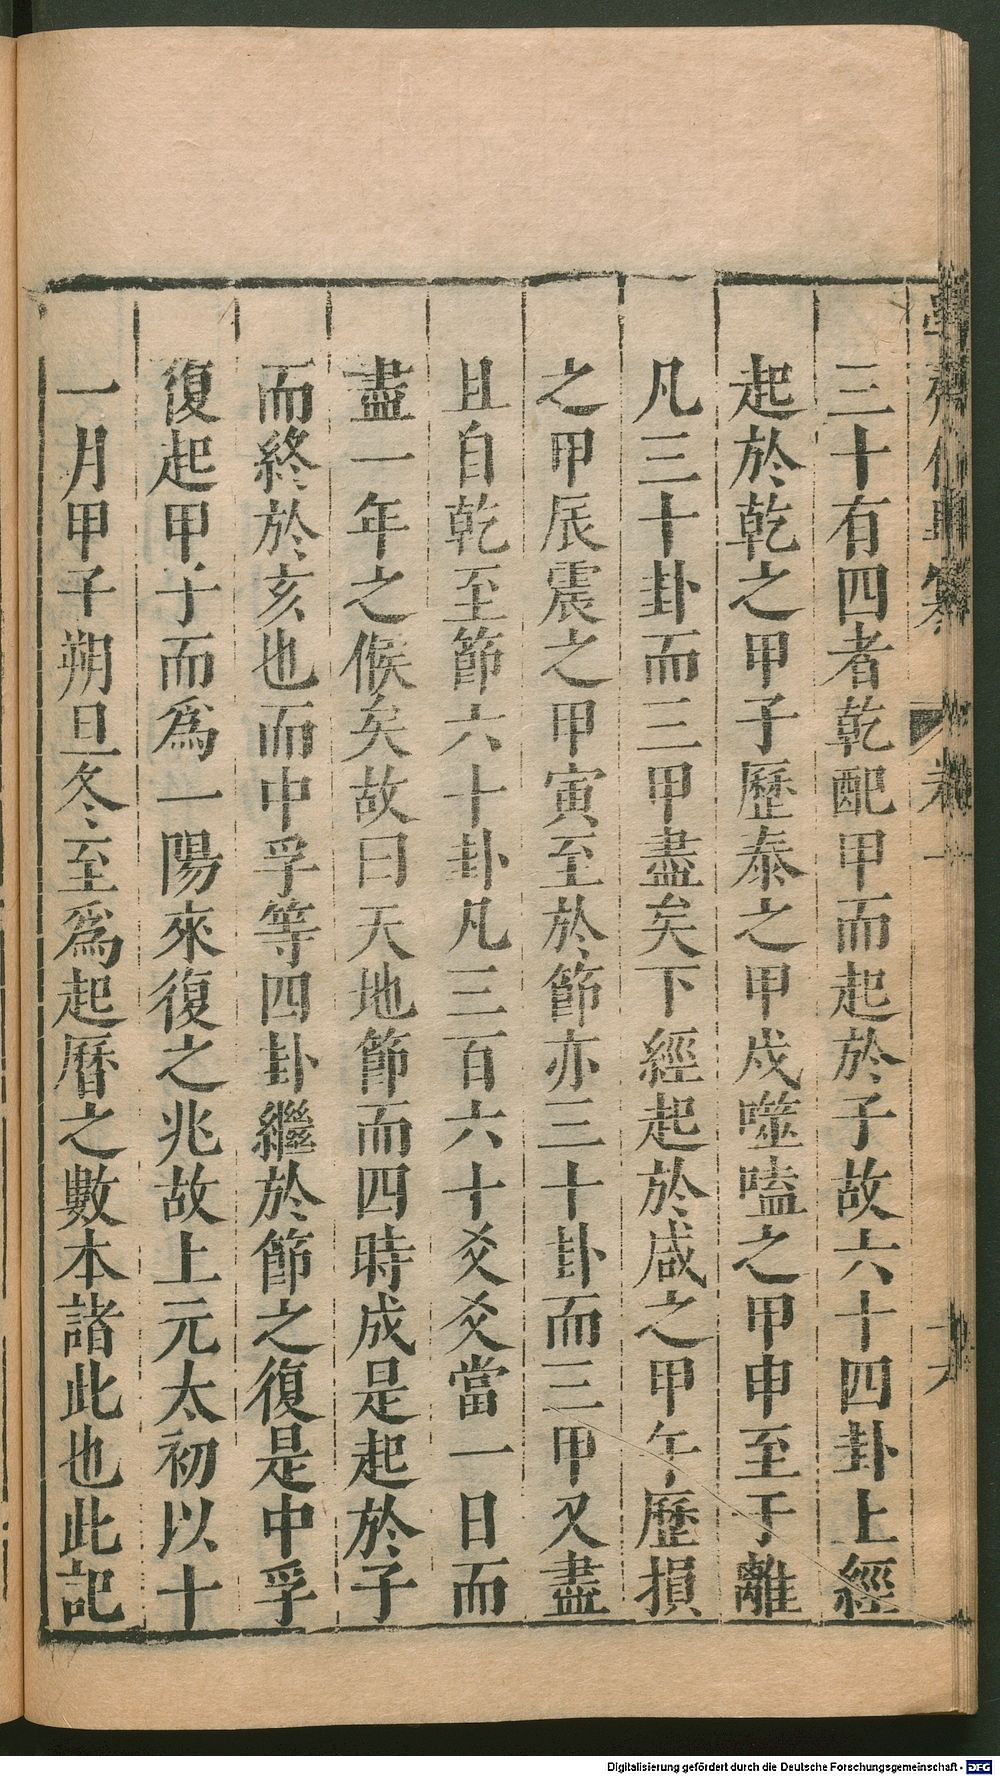 三十有四者乾配甲而起於子故六十四卦上經
起於乾之甲子歷泰之甲戌噬嗑之甲申至于離
凡三十卦而三甲盡矣下經起於咸之甲午歷損
之甲辰震之甲寅至於節亦三十卦而三甲又盡
且自乾至節六十卦凡三百六十爻爻當一日而
盡一年之候矣故曰天地節而四時成是起於子
而終於亥也而中孚等四卦繼於節之復是中孚
復起甲子而爲一陽來復之兆故上元太初以十
一月甲子朔旦冬至爲起曆之數本諸此也此記
Digitalisierung gefördert durch die Deutsche Forschungsgemeinschaft - DFG